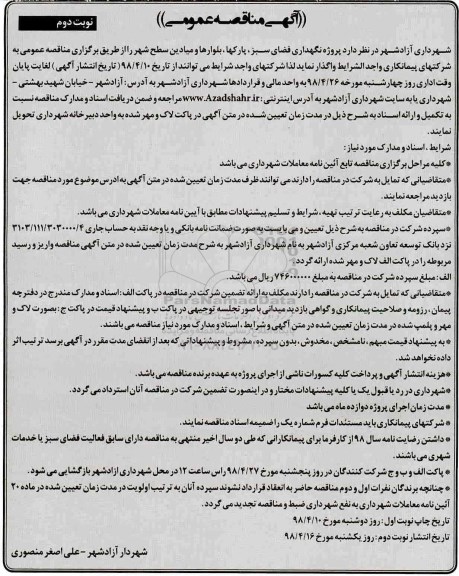 ((آگهی مناقصه عمومی))
نوبت دوم
شهرداری آزادشهر در نظر دارد پروژه نگهداری فضای سبز، پارکها، بلوارها و میادین سطح شهر را از طریق برگزاری مناقصه عمومی به
شرکتهای پیمانکاری واجد الشرایط واگذار نماید لذا شرکتهای واجد شرایط می توانند از تاریخ ۹۸/۴/۱۰ (تاریخ انتشار آگهی) لغایت پایان
وقت اداری روز چهارشنبه مورخه ۹۸/۴/۲۶ به واحد مالی و قراردادها شهرداری آزادشهر به آدرس: آزادشهر - خیابان شهید بهشتی -
شهرداری یا به سایت شهرداری آزادشهر به آدرس اینترنتی: www.Azadshahr.ir مراجعه و ضمن دریافت اسناد و مدارک مناقصه نسبت
به تکمیل و ارائه اسناد به شرح ذیل در مدت زمان تعیین شده در متن آگهی در پاکت لاک و مهر شده به واحد دبیرخانه شهرداری تحویل
نمایند.
شرایط، اسناد و مدارک مورد نیاز:
*کلیه مراحل برگزاری مناقصه تابع آئین نامه معاملات شهرداری می باشد
*متقاضیانی که تمایل به شرکت در مناقصه را دارند می توانند ظرف مدت زمان تعیین شده در متن آگهی به ادرس موضوع مورد مناقصه جهت
بازدید مراجعه نمایند.
*متقاضیان مکلف به رعایت ترتیب تهیه، شرایط و تسلیم پیشنهادات مطابق با آیین نامه معاملات شهرداری می باشند.
*سپرده شرکت در مناقصه به شرح ذیل تعیین و می بایست به صورت ضمانت نامه بانکی و یا وجه نقد به حساب جاری ۳۱۰۳/۱۱۱/۳۰۳۰۰۰۰/۴
نزد بانک توسعه تعاون شعبه مرکزی آزادشهر به نام شهرداری آزادشهر به شرح مدت زمان تعیین شده در متن آگهی مناقصه واریز و رسید
مربوطه را در پاکت الف لاک و مهر شده ارائه گردد.
الف: مبلغ سپرده شرکت در مناقصه به مبلغ ۷۴۶۰۰۰۰۰۰ ریال می باشد.
*متقاضیانی که تمایل به شرکت در مناقصه را دارند مکلف به ارائه تضمین شرکت در مناقصه در پاکت الف: اسناد و مدارک مندرج در دفترچه
پیمان، رزومه و صلاحیت پیمانکاری و گواهی بازدید میدانی با صور تجلسه توجیهی در پاکت ب و پیشنهاد قیمت در پاکت ج: بصورت لاک و
مهر و پلمپ شده در مدت زمان تعیین شده در متن آگهی و شرایط، اسناد و مدارک مورد نیاز مناقصه می باشند.
*به پیشنهاد قیمت مبهم، نامشخص، مخدوش، بدون سپرده، مشروط و پیشنهاداتی که بعد از انقضای مدت مقرر در آگهی برسد ترتیب اثر
داده نخواهد شد.
*هزینه انتشار آگهی و پرداخت کلیه کسورات ناشی از اجرای پروژه به عهده برنده مناقصه می باشد.
*شهرداری در رد یا قبول یک یا کلیه پیشنهادات مختار و در اینصورت تضمین شرکت در مناقصه آنان استرداد می گردد.
*مدت زمان اجرای پروژه دوازده ماه می باشد
*شرکتهای پیمانکاری باید مستندات فرم شماره یک را ضمیمه اسناد مناقصه نمایند.
*داشتن رضایت نامه سال ۹۸ از کارفرما برای پیمانکارانی که طی دو سال اخیر منتهی به مناقصه دارای سابق فعالیت فضای سبز یا خدمات
شهری می باشند.
*پاکت الف و ب و ج شرکت کنندگان در روز پنجشنبه مورخ ۹۸/۴/۲۷ راس ساعت ۱۲ در محل شهرداری ازادشهر بازگشایی می شود.
*چنانچه برندگان نفرات اول و دوم مناقصه حاضر به انعقاد قرارداد نشوند سپرده آنان به ترتیب اولویت در مدت زمان تعیین شده در ماده ۲۰
آئین نامه معاملات شهرداری به نفع شهرداری ضبط و مناقصه تجدید می گردد.
تاریخ چاپ نوبت اول: روز دوشنبه مورخ ۹۸/۴/۱۰
تاریخ انتشار نوبت دوم: روز یکشنبه مورخ ۹۸/۴/۱۶
شهردار آزادشهر - علی اصغر منصوری